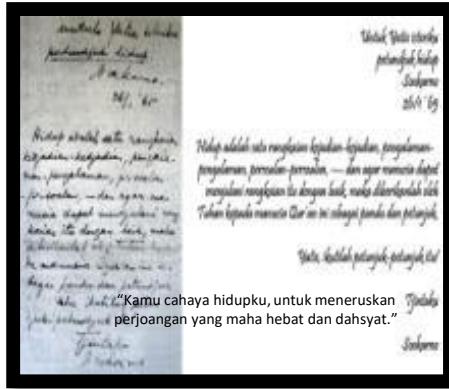 untuk Yatie isteriku
petundjuk hidup
Soekarno
26/1 '65
Hidup adalah satu rangkaian
kejadian-kedjadian, pengala-
man-pengalaman, persoalan-
persoalan, — dan agar ma-
nusia dapat
itu dengan baik, maka
Tuhan
Soekarno
Untuk Yatie isteriku
petundjuk hidup
Soekarno
26/1 '65
Hidup adalah satu rangkaian kejadian-kejadian, pengalaman-
pengalaman, persoalan-persoalan, — dan agar manusia dapat
mengalami rangkaian itu dengan baik, maka diberikanlah oleh
Tuhan kepada manusia Qur'an ini sebagai pandu dan petunjuk.
Yatie, ikutilah petunjuk-petunjuk itu!
Tjintaku
Soekarno
“Kamu cahaya hidupku, untuk meneruskan
perjoangan yang maha hebat dan dahsyat.”